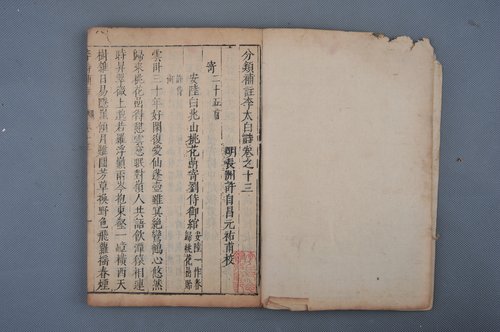 分類補註李太白詩卷之十三
明長洲許自昌元祐甫校
寄二十五首
安陸白兆山桃花巖寄劉侍御綰
安陸一作春
歸桃花巖貽
許侍
雲卧三十年好閑復愛仙蓬壺雖冥絶鸞鶴心悠然
歸來桃花巖得憩雲窻眠對嶺人共語飲潭猿相連
時昇翠微上邈若羅浮巔兩岑抱東壑一嶂横西天
樹雜日易隱崖傾月難圓芳草換野色飛蘿摇春煙